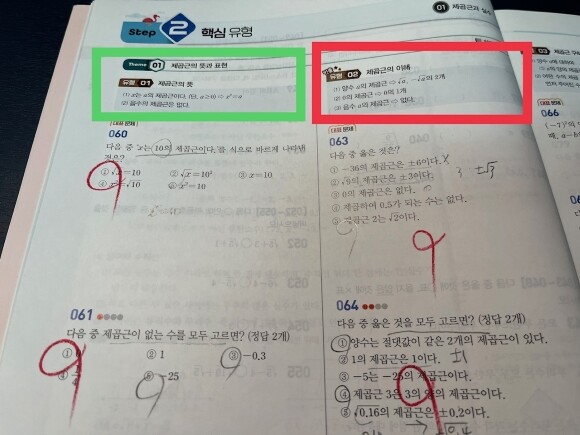 01 제곱근과 실수
Step 2 핵심 유형
Theme 01 제곱근의 뜻과 표현
유형 01 제곱근의 뜻
(1) x는 a의 제곱근이다. (단, a≥0) ⇨ x²=a
(2) 음수의 제곱근은 없다.
대표 문제
060
다음 중 'x는 10의 제곱근이다.'를 식으로 바르게 나타낸
것은?
① √x=10 ② √x=10² ③ x=10
④ x=√10 ⑤ x²=10
061
다음 중 제곱근이 없는 수를 모두 고르면? (정답 2개)
① 0 ② 1 ③ -0.3
④ ⑤ -25
유형 02 제곱근의 이해
(1) 양수 a의 제곱근 ⇨ √a, -√a의 2개
(2) 0의 제곱근 ⇨ 0의 1개
(3) 음수 a의 제곱근 ⇨ 없다.
대표 문제
063
다음 중 옳은 것은?
① -36의 제곱근은 ±6이다.
② √9의 제곱근은 ±3이다. ±√3
③ 0의 제곱근은 없다.
④ 제곱하여 0.5가 되는 수는 없다.
⑤ 제곱근 2는 √2이다.
064
다음 중 옳은 것을 모두 고르면? (정답 2개)
① 양수는 절댓값이 같은 2개의 제곱근이 있다.
② 1의 제곱근은 1이다. ±1
③ -5는 -25의 제곱근이다.
④ 제곱근 3은 3의 제곱근이다.
⑤ √0.16의 제곱근은 ±0.2이다.
√0.4
03 제곱근
066